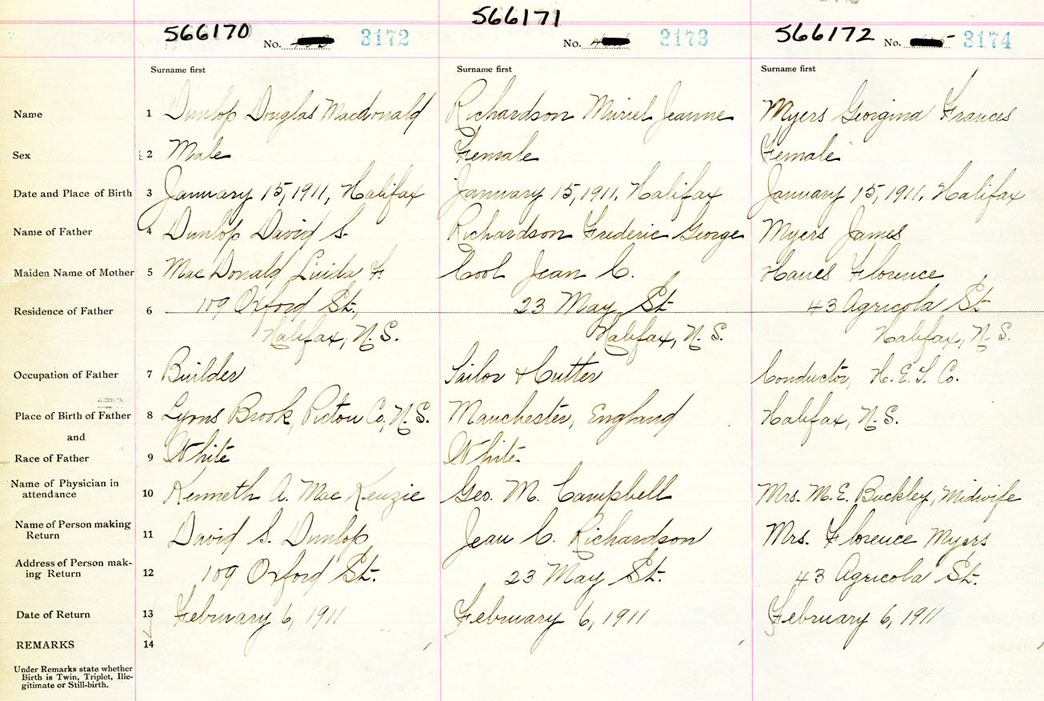 566170 No. 3172 566171 No. 3173 566172 No. 3174
Surname first Surname first Surname first
Name 1 Dunlop Douglas Macdonald Richardson Muriel Jeanne Myers Georgina Frances
Sex 2 Male Female Female
Date and Place of Birth 3 January 15, 1911, Halifax January 15, 1911, Halifax January 15, 1911, Halifax
Name of Father 4 Dunlop David S. Richardson Frederic George Myers James
Maiden Name of Mother 5 Mac Donald F Cool Jean C. Florence
Residence of Father 6 109 Oxford St. 23 May St 43 Agricola St
Halifax, N.S. Halifax, N.S. Halifax, N.S.
Occupation of Father 7 Builder Tailor & Cutter Conductor, H.E.T. Co.
Place of Birth of Father 8 Lyons Brook, Pictou Co, N.S. Manchester, England Halifax, N.S.
and
Race of Father 9 White White
Name of Physician in
attendance 10 Kenneth A. Mac Kenzie Geo. M. Campbell Mrs. M.E. Buckley, Midwife
Name of Person making
Return 11 David S. Dunlop Jean C. Richardson Mrs. Florence Myers
Address of Person mak-
ing Return 12 109 Oxford St. 23 May St. 43 Agricola St.
Date of Return 13 February 6, 1911 February 6, 1911 February 6, 1911
REMARKS 14
Under Remarks state whether
Birth is Twin, Triplet, Ille-
gitimate or Still-birth.